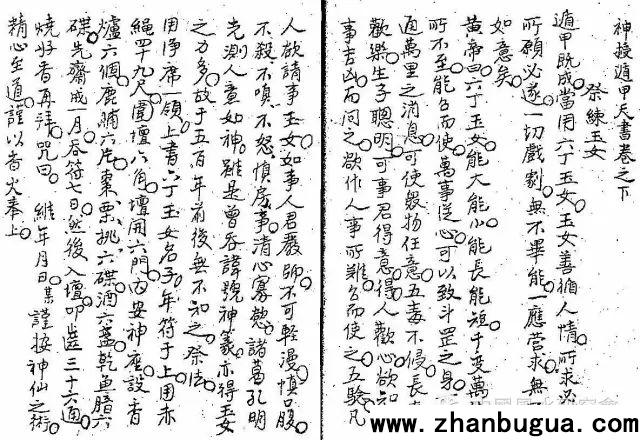 神授遁甲天書卷之下
祭練玉女
遁甲既成當用六丁玉女玉女善猶人情所求必
所願必遂一切戲劇無不畢能一應營求無
如意矣
黃帝曰六丁玉女能大能小能長能短千变萬
所不至能名而使萬事從心可以致斗罡之身
迫萬里之消息可使鬼物任意五毒不侵長
歡樂生子聰明可事君得意得人歡心欲知
事吉凶而问之欲作人事所難名而使之五驗凡
人欲請事玉女如事人君嚴師不可輕漫慎口腹
不殺不嗔不怒慎房事清心寡慾諸葛孔明
先測人意如神雖是曾吞諱號神籙亦得玉女
之力多故于五百年前後無不知之祭法
用净席一領上書六丁玉女名子年符于上用赤
繩罕九尺圍壇八角壇開六門内安神座設香
爐六個鹿脯六片棗栗桃六碟酒六盞乾魚腊六
碟先齋戒一月吞符七日然後入壇叩齒三十六通
燒好香再拜咒曰 維年月日某謹按神仙之術
精心至道謹以香火奉上
www.zhanbugua.com